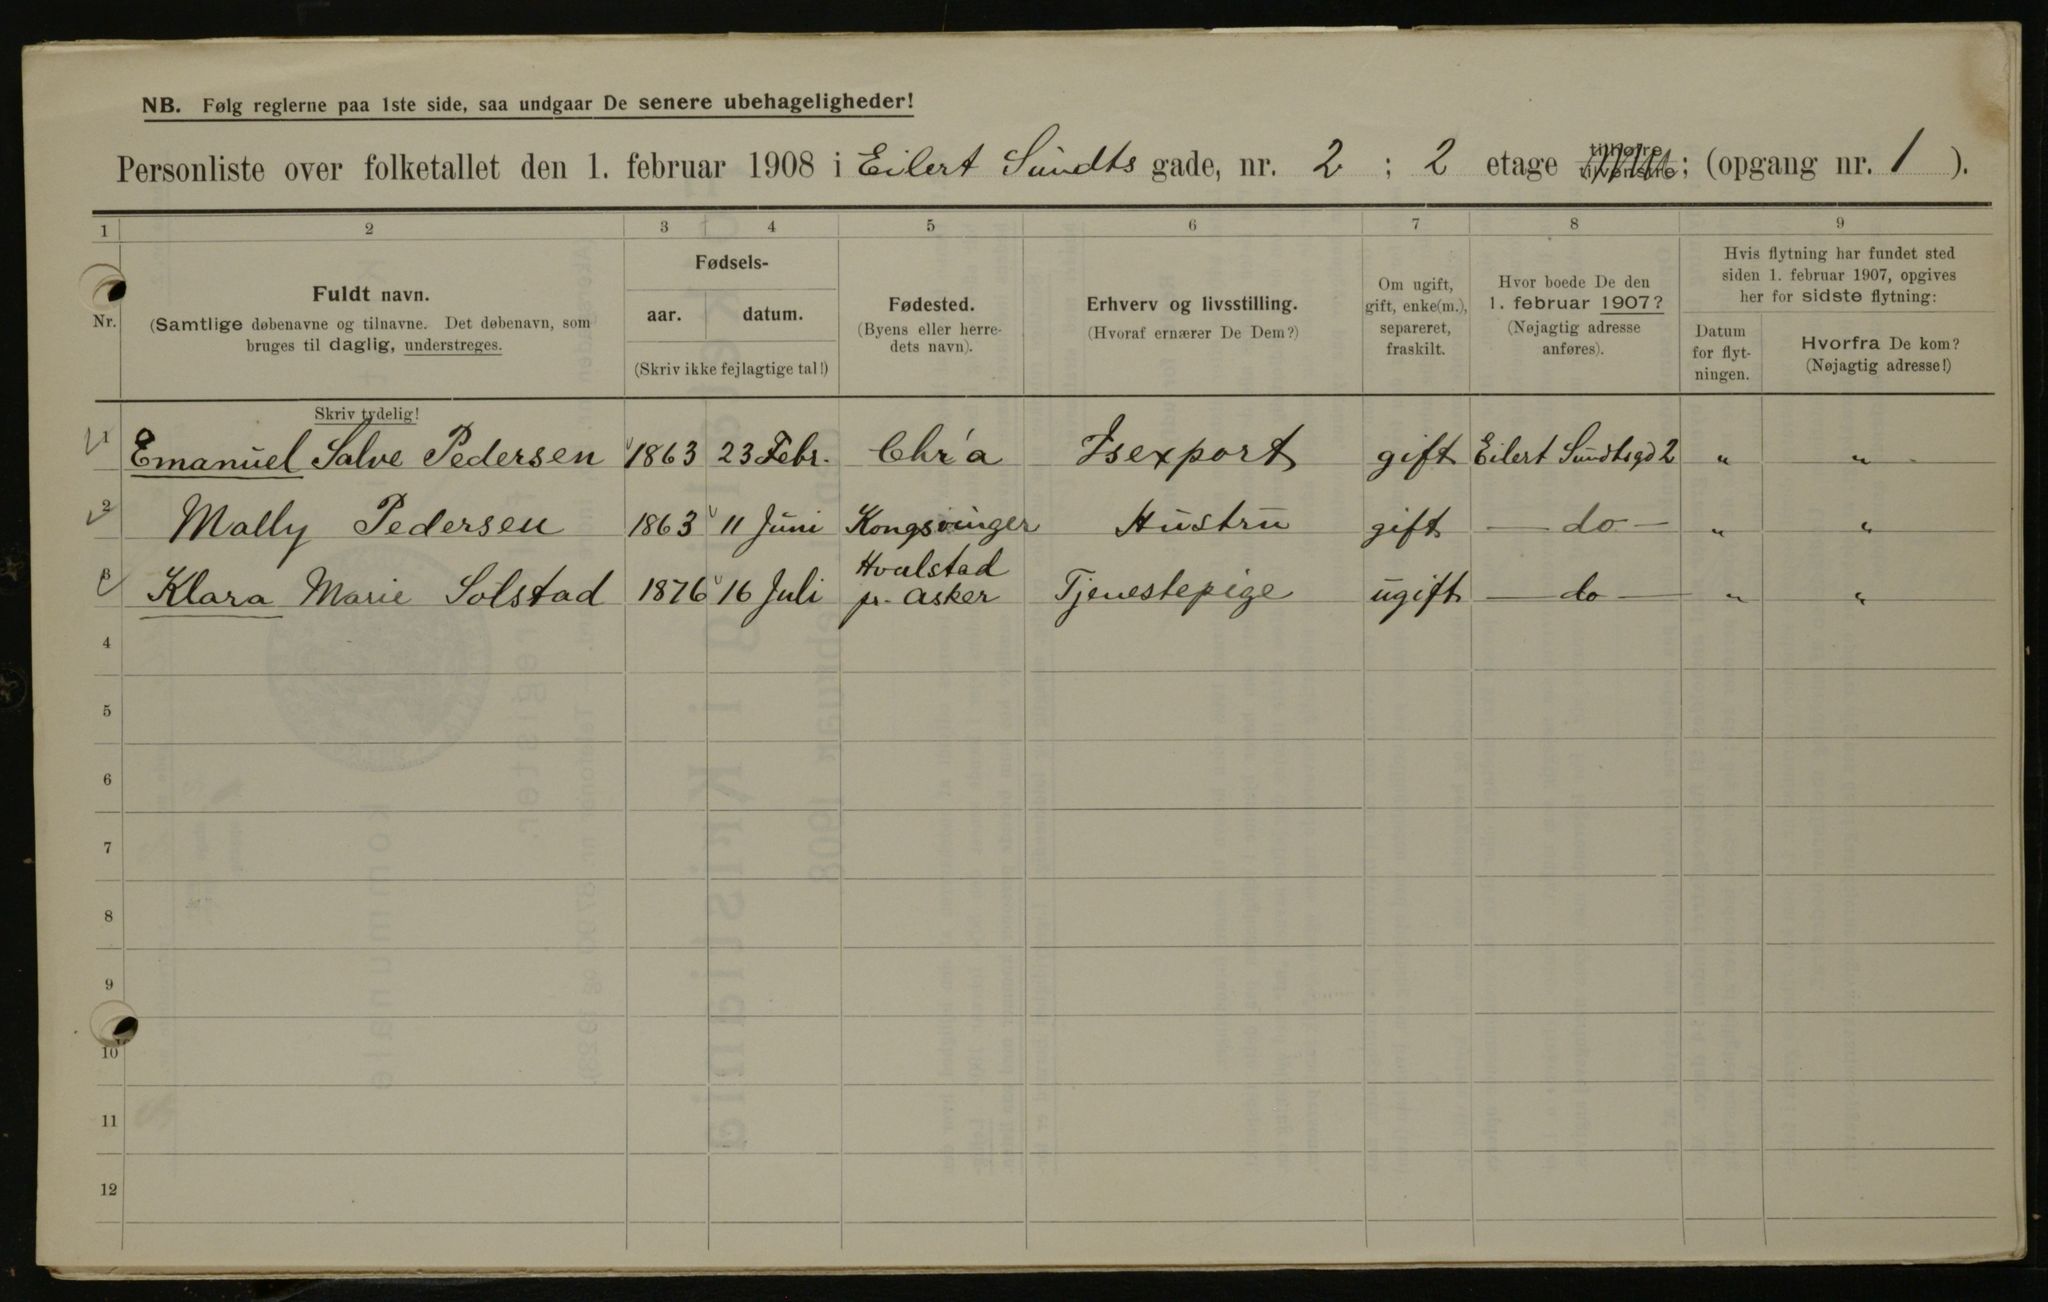 NB. Følg reglerne paa 1ste side, saa undgaar De senere ubehageligheder!
Personliste over folketallet den 1. februar 1908 i Eilert Sundts gade, nr. 2 ; 2 etage tilhøjre tilvenstre ; (opgang nr. 1 ).
1 2 3 4 5 6 7 8 9
Nr.
Fuldt navn.
(Samtlige døbenavne og tilnavne. Det døbenavn, som
bruges til daglig, understreges.
Fødsels-
aar. datum.
(Skriv ikke fejlagtige tal!)
Fødested.
(Byens eller herre-
dets navn).
Erhverv og livsstilling.
(Hvoraf ernærer De Dem?)
Om ugift,
gift, enke(m.),
separeret,
fraskilt.
Hvor boede De den
1. februar 1907?
(Nøjagtig adresse
anføres).
Hvis flytning har fundet sted
siden 1. februar 1907, opgives
her for sidste flytning:
Datum
for flyt-
ningen.
Hvorfra De kom?
(Nøjagtig adresse!)
Skriv tydelig!
1 Emanuel Salve Pedersen 1863 23 Febr. Chr'a Isexport gift Eilert Sundtsgd 2 " "
2 Mally Pedersen 1863 11 Juni Kongsvinger Hustru gift — do — " "
3 Klara Marie Solstad 1876 16 Juli Hvalstad pr. Asker Tjenestepige ugift — do — " "
4
5
6
7
8
9
10
11
12